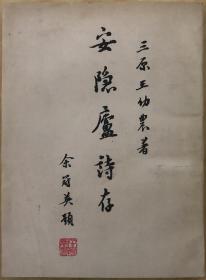 三原王幼農著
安隱廬詩存
余冠英題